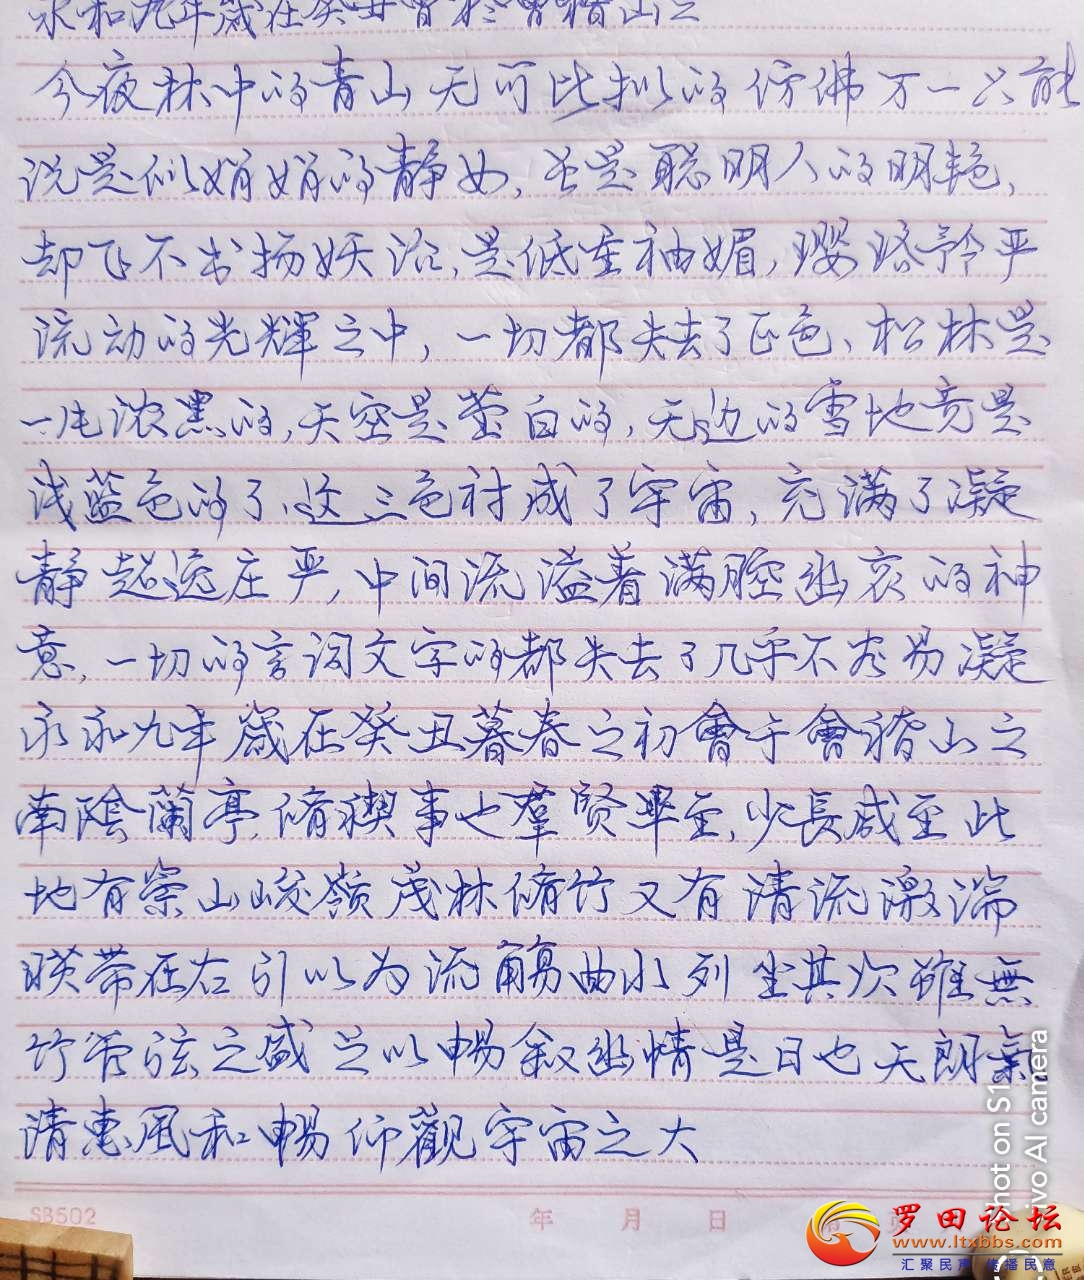 永和九年歲在癸丑會於會稽山之
今夜林中的青山无可比拟的仿佛万一只能
说是似娟娟的静女,虽是聪明人的明艳,
却飞不出扬妖冶,是低垂袖媚,璎珞矜严
流动的光輝之中,一切都失去了正色、松林是
一片浓黑的,天空是莹白的,无边的雪地竟是
浅蓝色的了、这三色衬成了宇宙,充满了凝
静超逸庄严,中间流溢着满腔幽哀的神
意,一切的言词文字的都失去了几乎不容易凝
永和九年歲在癸丑暮春之初會于會稽山之
南陰蘭亭,脩禊事也羣賢畢至,少長咸至此
地有崇山峻嶺茂林脩竹又有清流激湍
暎带在右引以为流觴曲水列坐其次雖無
竹管弦之盛足以暢叙幽情是日也天朗氣
清惠風和暢仰觀宇宙之大
SB502
年 月 日 第 页
罗田论坛
www.ltxbbs.com
汇聚民声 传播民意
Shot on S1
vivo AI camera